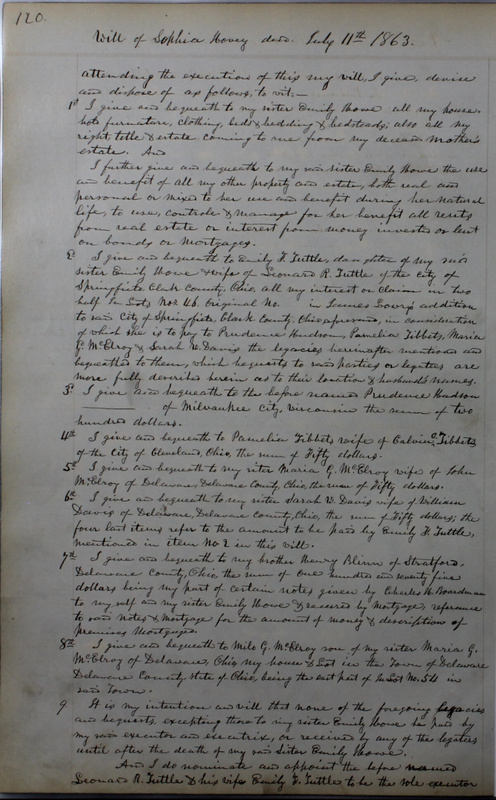 120.
Will of Sophia Hovey decd. July 11th 1863.
attending the execution of this my will, I give, devise
and dispose of as follows, to wit:—
1st I give and bequeath to my sister Emily Howe all my house
hold furniture, clothing, beds & bedding & bedsteads; also all my
right title & estate coming to me from my deceased mother's
estate. And
I further give and bequeath to my said sister Emily Howe the use
and benefit of all my other property and estate, both real and
personal or mixed to her use and benefit during her natural
life, to use, controle & manage for her benefit all rents
from real estate or interest from money invested or lent
on bonds or mortgages.
2d I give and bequeath to Emily F. Tuttle, daughter of my said
sister Emily Howe & wife of Leonard R. Tuttle of the City of
Springfield Clark County, Ohio, all my interest or claim in two
half In Lots No 2 46 Original No. in James Lowry's addition
to said City of Springfield, Clark County Ohio aforesaid, in consideration
of which she is to pay to Prudence Hudson, Pamelia Tibbets, Maria
G. McElroy & Sarah W. Davis the legacies hereinafter mentioned and
bequeathed to them, which bequests to said parties or legatees are
more fully described herein as to their location & husband's names.
3d I give and bequeath to the before named Prudence Hudson
of Milwaukee City, Wisconsin the sum of two
hundred dollars.
4th I give and bequeath to Pamelia Tibbets wife of Calvin Tibbets
of the City of Cleveland, Ohio, the sum of Fifty dollars.
5th I give and bequeath to my sister Maria G. McElroy wife of John
McElroy of Delaware, Delaware County, Ohio, the sum of Fifty dollars.
6th I give and bequeath to my sister Sarah W. Davis wife of William
Davis of Delaware, Delaware County, Ohio, the sum of Fifty dollars; the
four last items refer to the amount to be paid by Emily F. Tuttle,
mentioned in item No 2 in this will.
7th I give and bequeath to my brother Henry Blinn of Stratford,
Delaware County, Ohio, the sum of One hundred and seventy five
dollars being my part of certain notes given by Charles H. Boardman
to my self and my sister Emily Howe & secured by Mortgage, reference
to said notes & Mortgage for the amount of money & description of
premises Mortgaged.
8th I give and bequeath to Milo G. McElroy son of my sister Maria G.
McElroy of Delaware, Ohio, my house & Lot in the Town of Delaware
Delaware County, State of Ohio, being the east part of In Lot No. 54 in
said Town.
9. It is my intention and will that none of the foregoing legacies
and bequests, excepting those to my sister Emily Howe be paid by
my said executor and executrix, or received by any of the legatees
until after the death of my said Sister Emily Howe.
And I do nominate and appoint the before named
Leonard R. Tuttle & his wife Emily F. Tuttle to be the sole executor